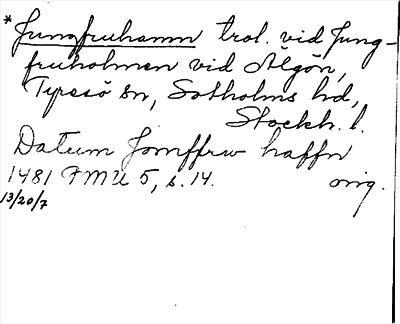 *Jungfruhamn trol. vid Jung-
fruholmen vid Älgön,
Tyresö sn, Sotholms hd,
Stockh. l.
Datum Jomffrw haffn
1481 FMU 5, s. 14. orig.
13/20/7